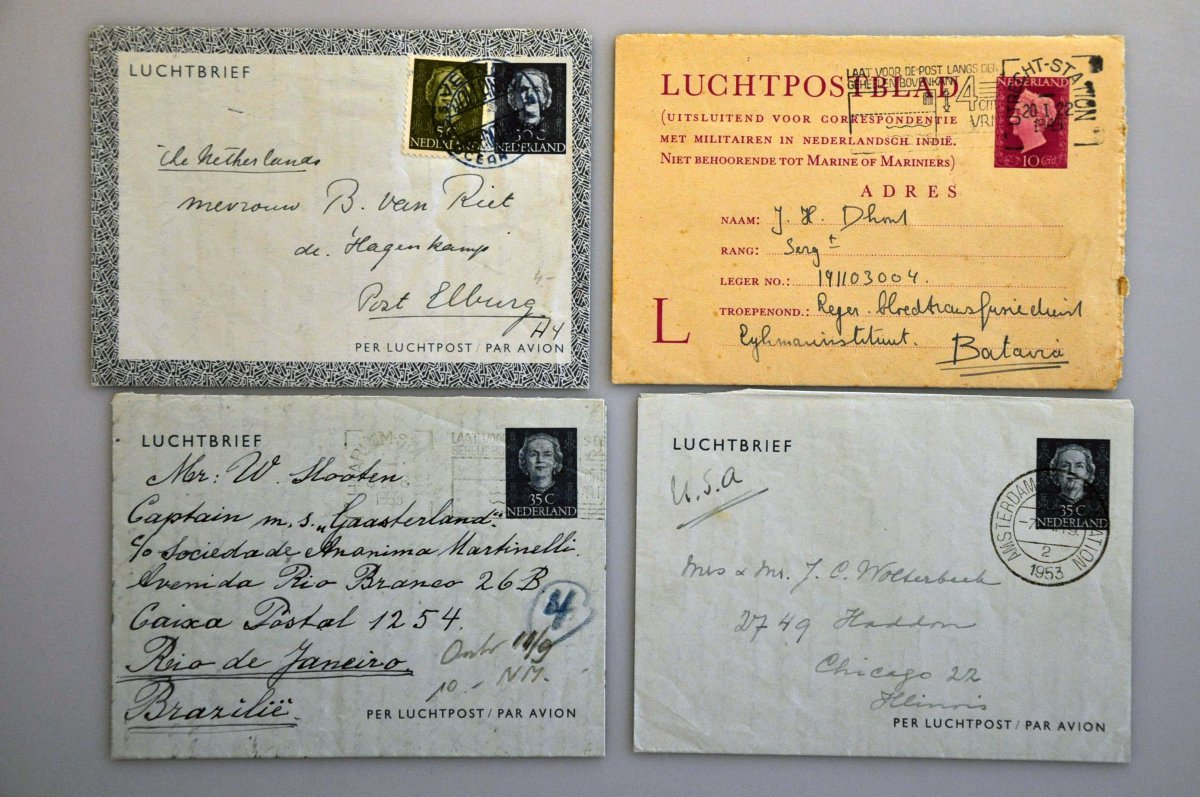 LUCHTBRIEF
5c
NEDERLAND
30C
NEDERLAND
OCEAN
The Netherlands
mevrouw B. van Riet
de Hagenkamp
Post Elburg
4-
H4
PER LUCHTPOST / PAR AVION
LUCHTPOSTBLAD
(UITSLUITEND VOOR CORRESPONDENTIE
MET MILITAIREN IN NEDERLANDSCH INDIË.
NIET BEHOORENDE TOT MARINE OF MARINIERS)
LAAT VOOR DE POST LANGS DEN
GEHEELEN BOVENKANT
14 cm
VRIJ
NEDERLAND
10 c
20.I 22
ADRES
NAAM: J. H. Dhont
RANG: Sergt
LEGER NO.: 191103004.
TROEPENOND.: Reger. bloedtransfusiedienst
Eykmaninstituut.
Batavia
L
LUCHTBRIEF
1953
LAAT VOOR
35C
NEDERLAND
Mr: W. Slooten
Captain m.s. „Gaasterland"
c/o Sociedade Anonima Martinelli.
Avenida Rio Branco 26 B.
Caixa Póstal 1254.
Rio de Janeiro.
Brazilië.
4
11/9
10.- NM.
PER LUCHTPOST / PAR AVION
LUCHTBRIEF
35C
NEDERLAND
AMSTERDAM
2
1953
U.S.A
Mrs & Mr. J. C. Wolterbeek
2749 Haddon
Chicago 22
Illinois
PER LUCHTPOST / PAR AVION